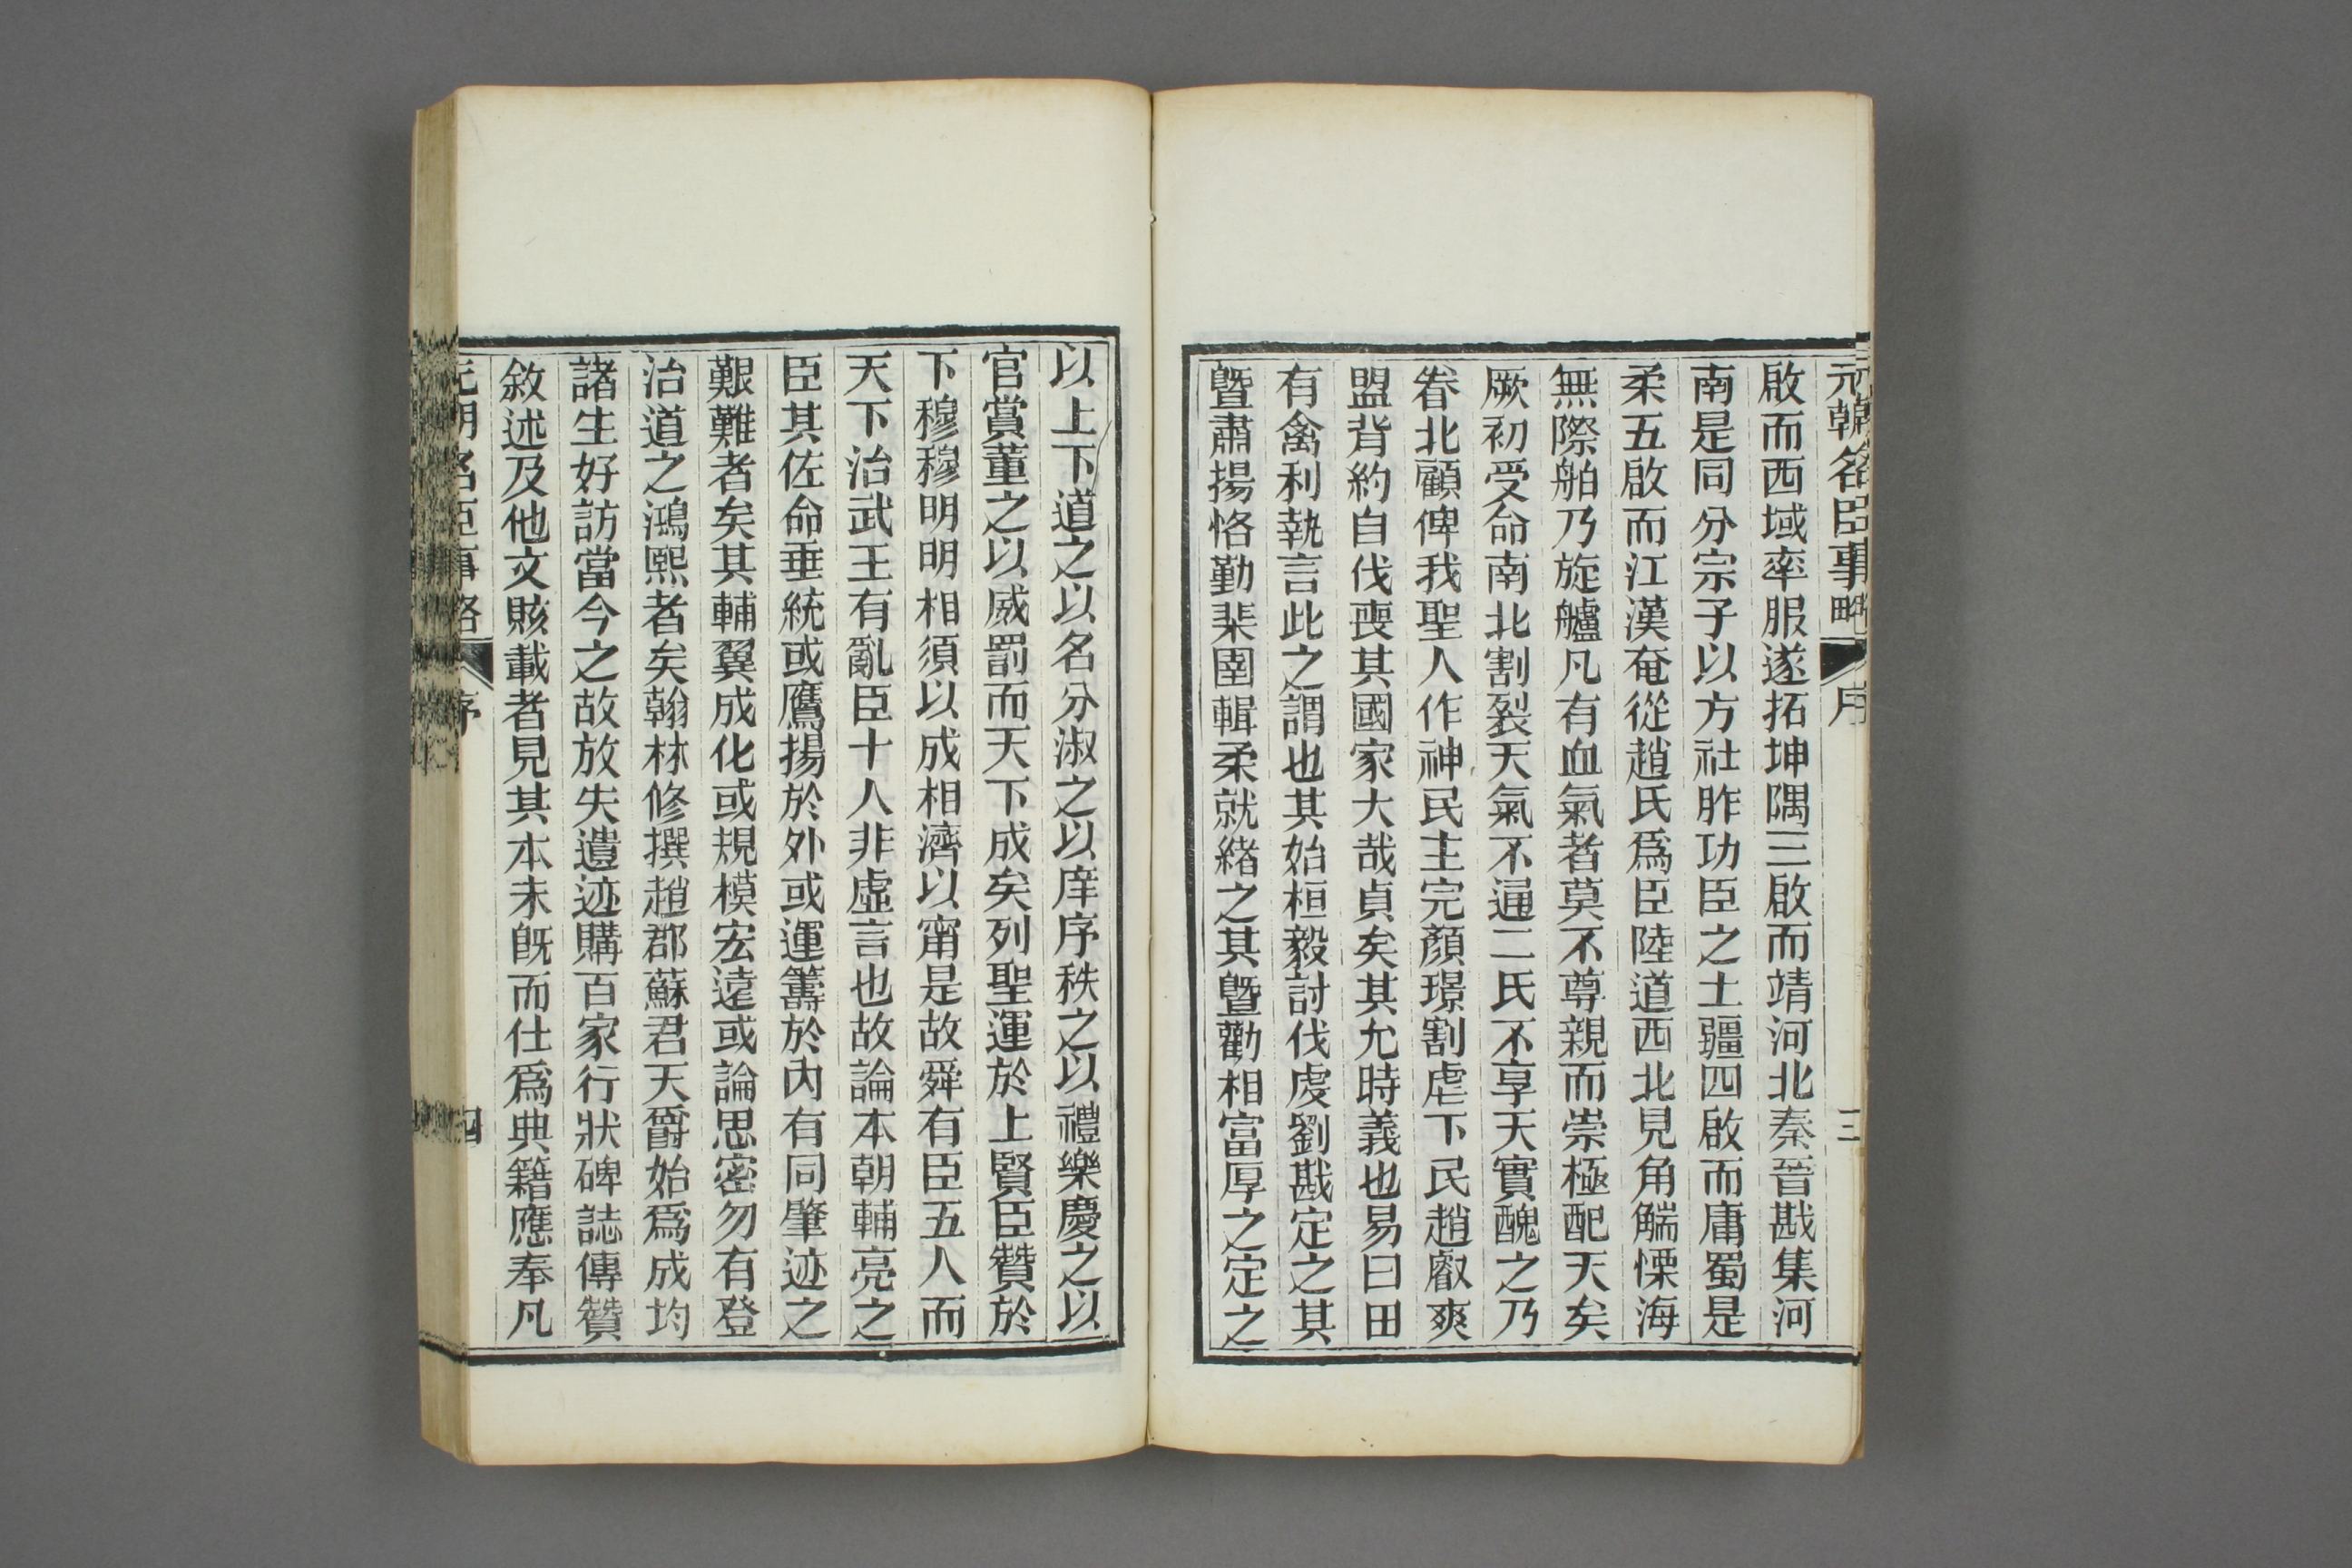 元朝名臣事略
序
三
啟而西域率服遂拓坤隅三啟而靖河北秦晉戡集河
南是同分宗子以方社胙功臣之土疆四啟而庸蜀是
柔五啟而江漢奄從趙氏爲臣陸道西北見角觿慄海
無際舶乃旋艫凡有血氣者莫不尊親而崇極配天矣
厥初受命南北割裂天氣不通二氏不享天實醜之乃
眷北顧俾我聖人作神民主完顏璟割虐下民趙㪫爽
盟背約自伐喪其國家大哉貞矣其允時義也易曰田
有禽利執言此之謂也其始桓毅討伐虔劉戡定之其
曁肅揚恪勤棐圉輯柔就緒之其曁勸相富厚之定之
以上下道之以名分淑之以庠序秩之以禮樂慶之以
官賞董之以威罰而天下成矣列聖運於上賢臣贊於
下穆穆明明相須以成相濟以甯是故舜有臣五人而
天下治武王有亂臣十人非虛言也故論本朝輔亮之
臣其佐命垂統或鷹揚於外或運籌於內有同肇迹之
艱難者矣其輔翼成化或規模宏遠或論思密勿有登
治道之鴻熙者矣翰林修撰趙郡蘇君天爵始爲成均
諸生好訪當今之故放失遺迹購百家行狀碑誌傳贊
敘述及他文賅載者見其本末旣而仕爲典籍應奉凡
元朝名臣事略
序
四